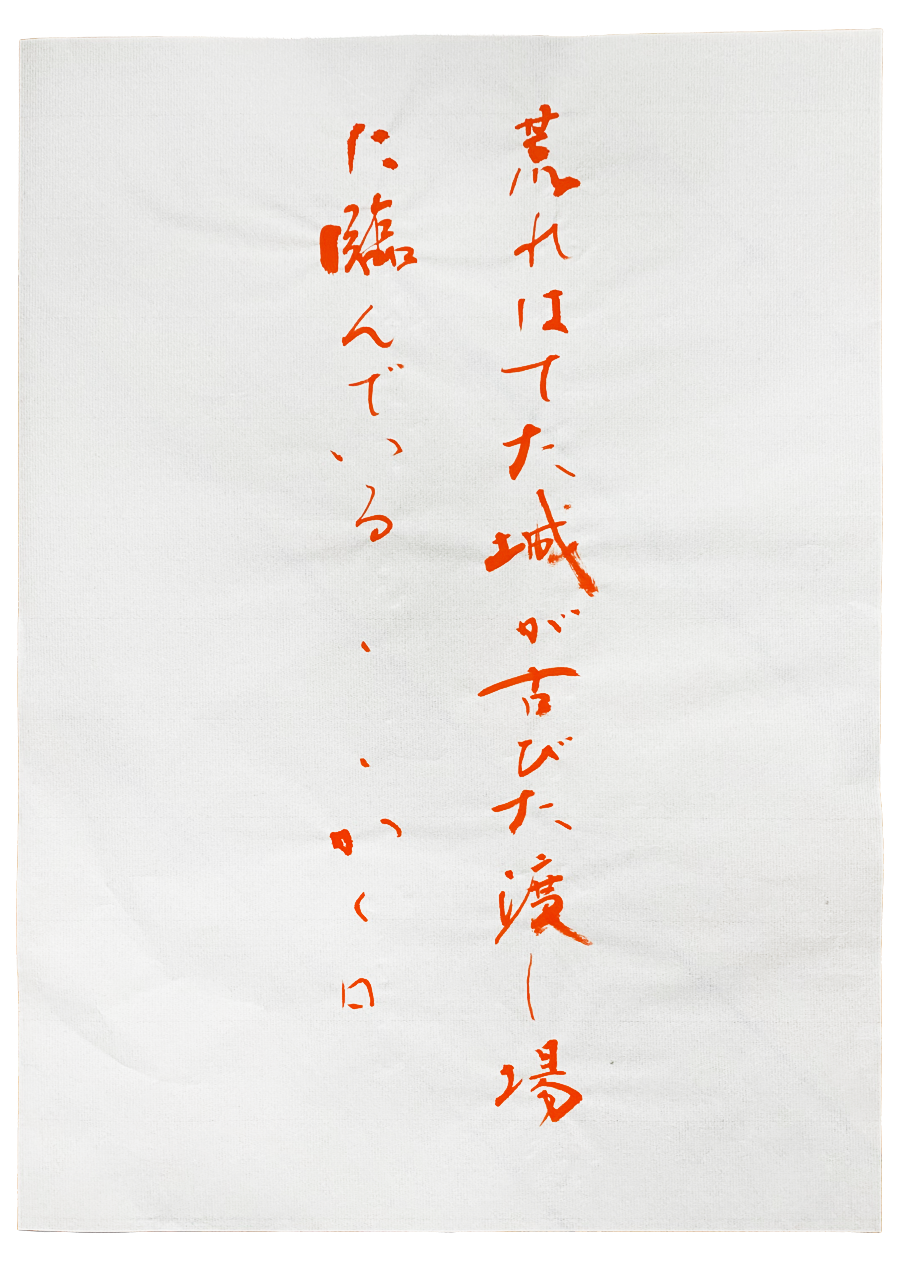 荒れはてた城が古びた渡し場
に臨んでいる、、かく日